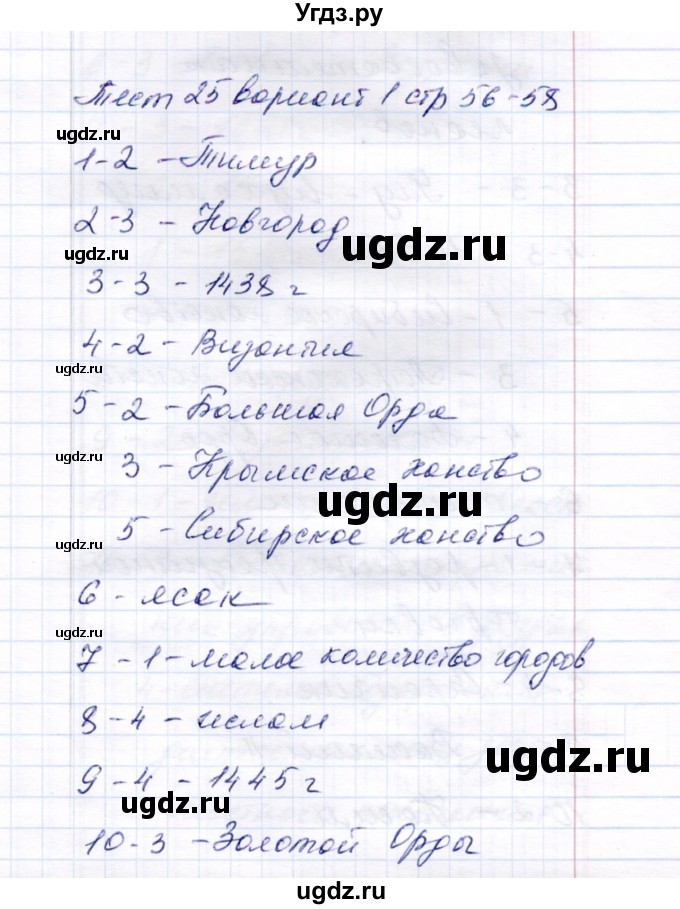 Угдз.ру
Тест 25 вариант 1 стр 56-58
ugdz.ru
1-2 - Тимур
2-3 - Новгород
ugdz.ru
ugdz.ru
3-3 - 1438 г
4-2 - Византия
ugdz.ru
5-2 - Большая Орда
ugdz.ru
3 - Крымское ханство
ugdz.ru
5 - Сибирское ханство
ugdz.ru
6 - ясак
ugdz.ru
7 - 1 - малое количество городов
8-4 - ислам
ugdz.ru
9-4 - 1445 г
ugdz.ru
10-3 - Золотой Орды
ugdz.ru